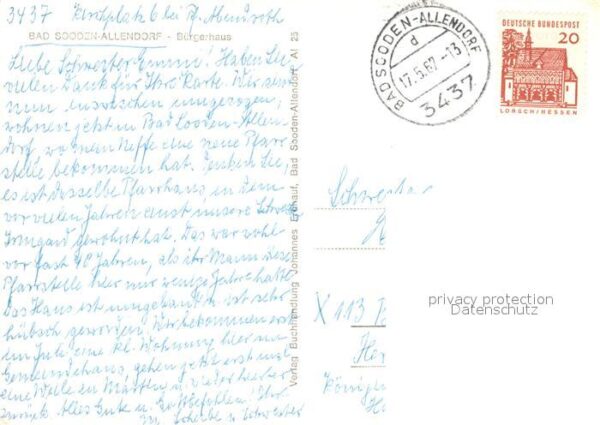 3437 Kirchplatz 6 bei Pf. Abendroth
BAD SOODEN-ALLENDORF - Bürgerhaus
Liebe Schwester Emmi! Haben Sie
vielen Dank für Ihre Karte. Wir sind
nun inzwischen umgezogen,
wohnen jetzt in Bad Sooden-Allen-
dorf, wo mein Neffe eine neue Pfarr-
stelle bekommen hat. Denken Sie,
es ist dasselbe Pfarrhaus, in dem
vor vielen Jahren einst unsere Schwester
Irmgard gewohnt hat. Das war wohl
vor fast 40 Jahren, als ihr Mann diese
Pfarrstelle hier nur wenige Jahre hatte
das Haus ist umgebaut u. ist sehr
hübsch geworden. Wir bekommen erst
im Juli eine kl. Wohnung hier im
Gemeindehaus, gehen jetzt erst mal
eine Weile zu u. wieder hierher
zurück. Alles Gute u. Gott befohlen! Ihre
M. u. Schwester
Verlag Buchhandlung Johannes Bad Sooden-Allendorf Al 25
BAD SOODEN-ALLENDORF
d
17.5.67.-13
3437
DEUTSCHE BUNDESPOST
20
LORSCH/HESSEN
Schwester
H
X 113
privacy protection
Datenschutz